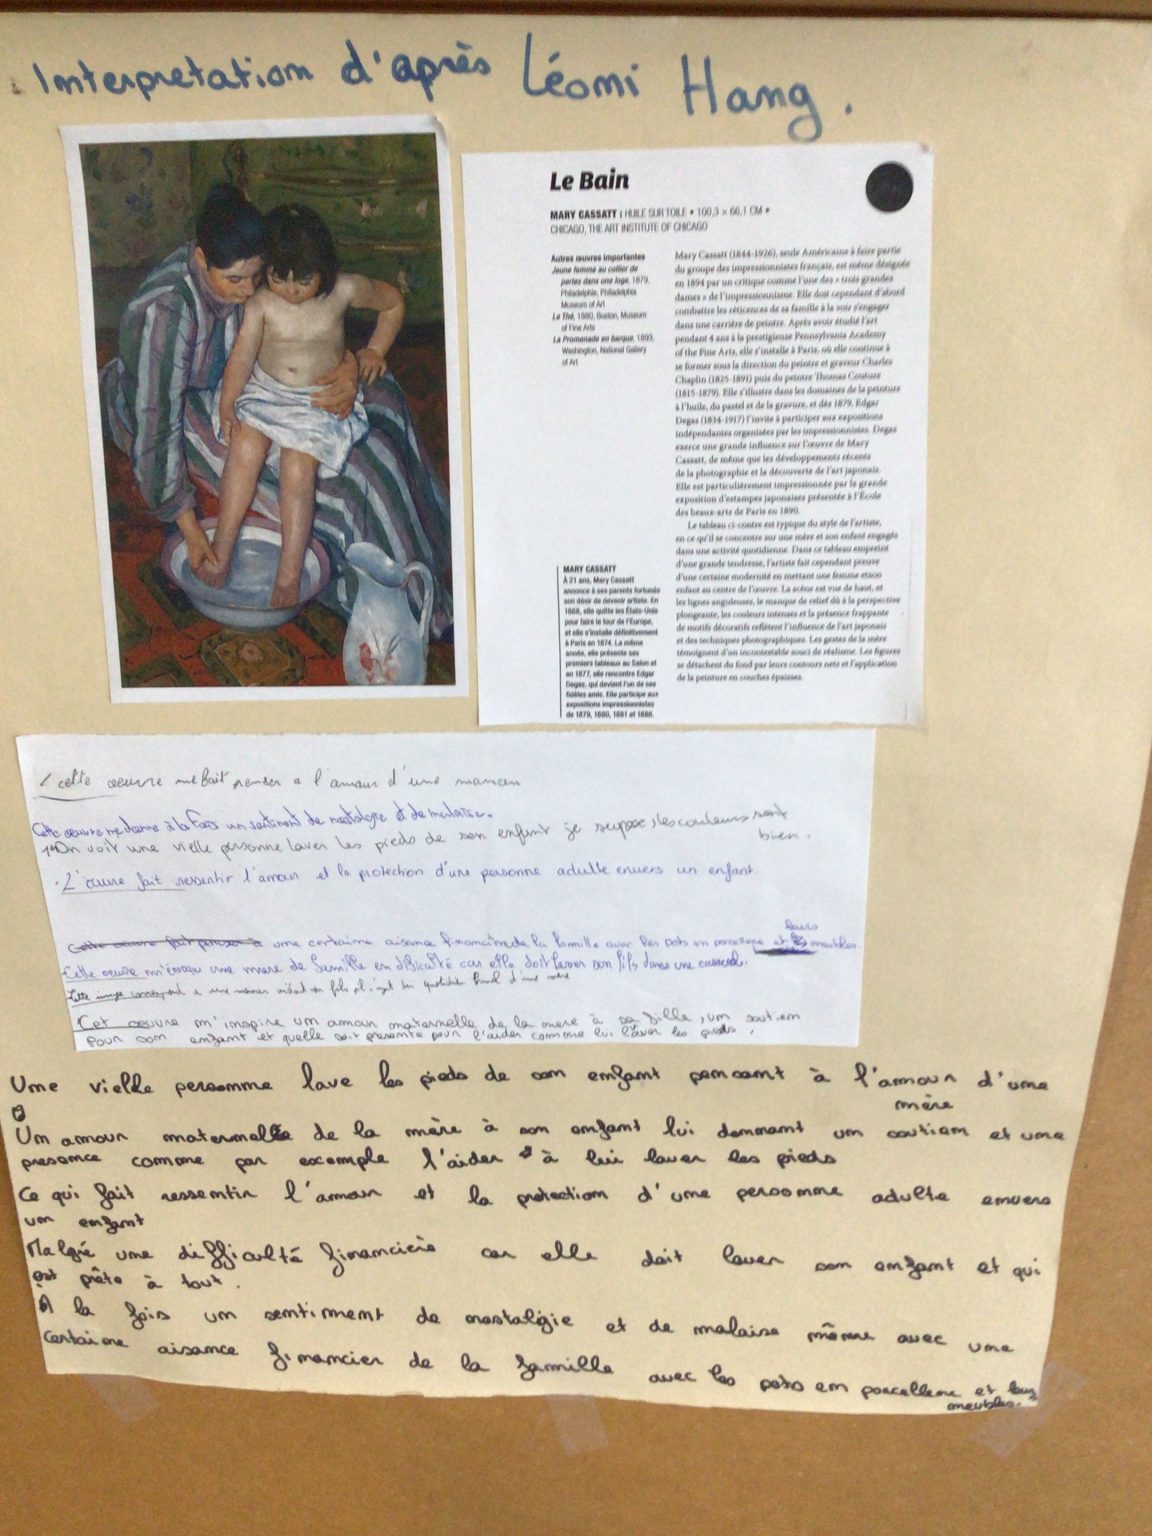 Interpretation d'après Léomi Hang.
Le Bain
MARY CASSATT | HUILE SUR TOILE • 100,3 × 66,1 CM •
CHICAGO, THE ART INSTITUTE OF CHICAGO
Autres œuvres importantes
Jeune femme au collier de
perles dans une loge, 1879,
Philadelphie, Philadelphia
Museum of Art
Le Thé, 1880, Boston, Museum
of Fine Arts
La Promenade en barque, 1893,
Washington, National Gallery
of Art
MARY CASSATT
À 21 ans, Mary Cassatt
annonce à ses parents fortunés
son désir de devenir artiste. En
1868, elle quitte les États-Unis
pour faire le tour de l'Europe,
et elle s'installe définitivement
à Paris en 1874. La même
année, elle présente ses
premiers tableaux au Salon et
en 1877, elle rencontre Edgar
Degas, qui devient l'un de ses
fidèles amis. Elle participe aux
expositions impressionnistes
de 1879, 1880, 1881 et 1886.
Mary Cassatt (1844-1926), seule Américaine à faire partie
du groupe des impressionnistes français, est même désignée
en 1894 par un critique comme l'une des « trois grandes
dames » de l'impressionnisme. Elle doit cependant d'abord
combattre les réticences de sa famille à la voir s'engager
dans une carrière de peintre. Après avoir étudié l'art
pendant 4 ans à la prestigieuse Pennsylvania Academy
of the Fine Arts, elle s'installe à Paris, où elle continue à
se former sous la direction du peintre et graveur Charles
Chaplin (1825-1891) puis du peintre Thomas Couture
(1815-1879). Elle s'illustre dans les domaines de la peinture
à l'huile, du pastel et de la gravure, et dès 1879, Edgar
Degas (1834-1917) l'invite à participer aux expositions
indépendantes organisées par les impressionnistes. Degas
exerce une grande influence sur l'œuvre de Mary
Cassatt, de même que les développements récents
de la photographie et la découverte de l'art japonais.
Elle est particulièrement impressionnée par la grande
exposition d'estampes japonaises présentée à l'École
des beaux-arts de Paris en 1890.
Le tableau ci-contre est typique du style de l'artiste,
en ce qu'il se concentre sur une mère et son enfant engagés
dans une activité quotidienne. Dans ce tableau empreint
d'une grande tendresse, l'artiste fait cependant preuve
d'une certaine modernité en mettant une femme et son
enfant au centre de l'œuvre. La scène est vue de haut, et
les lignes anguleuses, le manque de relief dû à la perspective
plongeante, les couleurs intenses et la présence frappante
de motifs décoratifs reflètent l'influence de l'art japonais
et des techniques photographiques. Les gestes de la mère
témoignent d'un incontestable souci de réalisme. Les figures
se détachent du fond par leurs contours nets et l'application
de la peinture en couches épaisses.
cette œuvre me fait penser a l'amour d'une maman
Cette œuvre me donne à la fois un sentiment de nostalgie et de malaise.
On voit une vielle personne laver les pieds de son enfant je suppose, les couleurs sont
bien.
L'œuvre fait ressentir l'amour et la protection d'une personne adulte envers un enfant.
Cette œuvre fait penser à une certaine aisance financière de la famille avec les pots en porcelaine et leurs meubles
Cette œuvre m'évoque une mère de famille en difficulté car elle doit laver son fils dans une
Cette image correspond a une
Cet œuvre m'inspire un amour maternelle de la mère à sa fille, un soutien
pour son enfant et quelle soit présente pour l'aider comme lui laver les pieds.
Une vielle personne lave les pieds de son enfant pensant à l'amour d'une
mère
Un amour maternelle de la mère à son enfant lui donnant un soutien et une
presence comme par excemple l'aider à lui laver les pieds
Ce qui fait ressentir l'amour et la protection d'une personne adulte envers
un enfant
Malgré une difficulté financière car elle doit laver son enfant et qui
est prête à tout.
A la fois un sentiment de nostalgie et de malaise même avec une
certaine aisance financier de la famille avec les pots en porcellene et leurs
meubles.